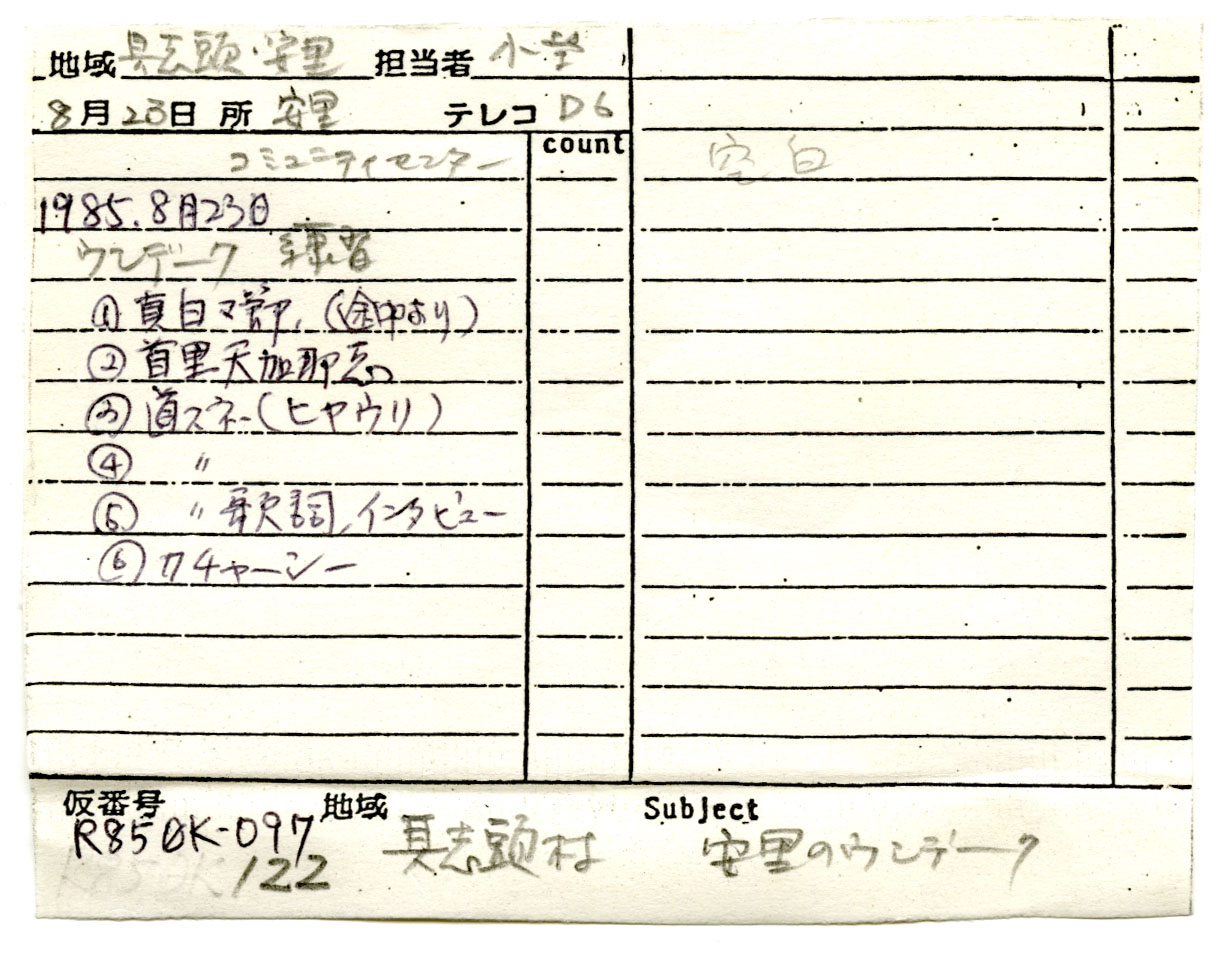 地域 具志頭・安里 担当者 小
8月23日 所 安里 テレコ D6
コミュニティセンター
count
空白
1985.8月23日
ウンデーク 練習
① 真白マ節,(途中より)
② 首里天加那志
③ 道スネー(ヒヤウリ)
④ 〃
⑤ 〃 歌詞,インタビュー
⑥ カチャーシー
仮番号 地域 Subject
R850K-097 具志頭村 安里のウンデーク
122